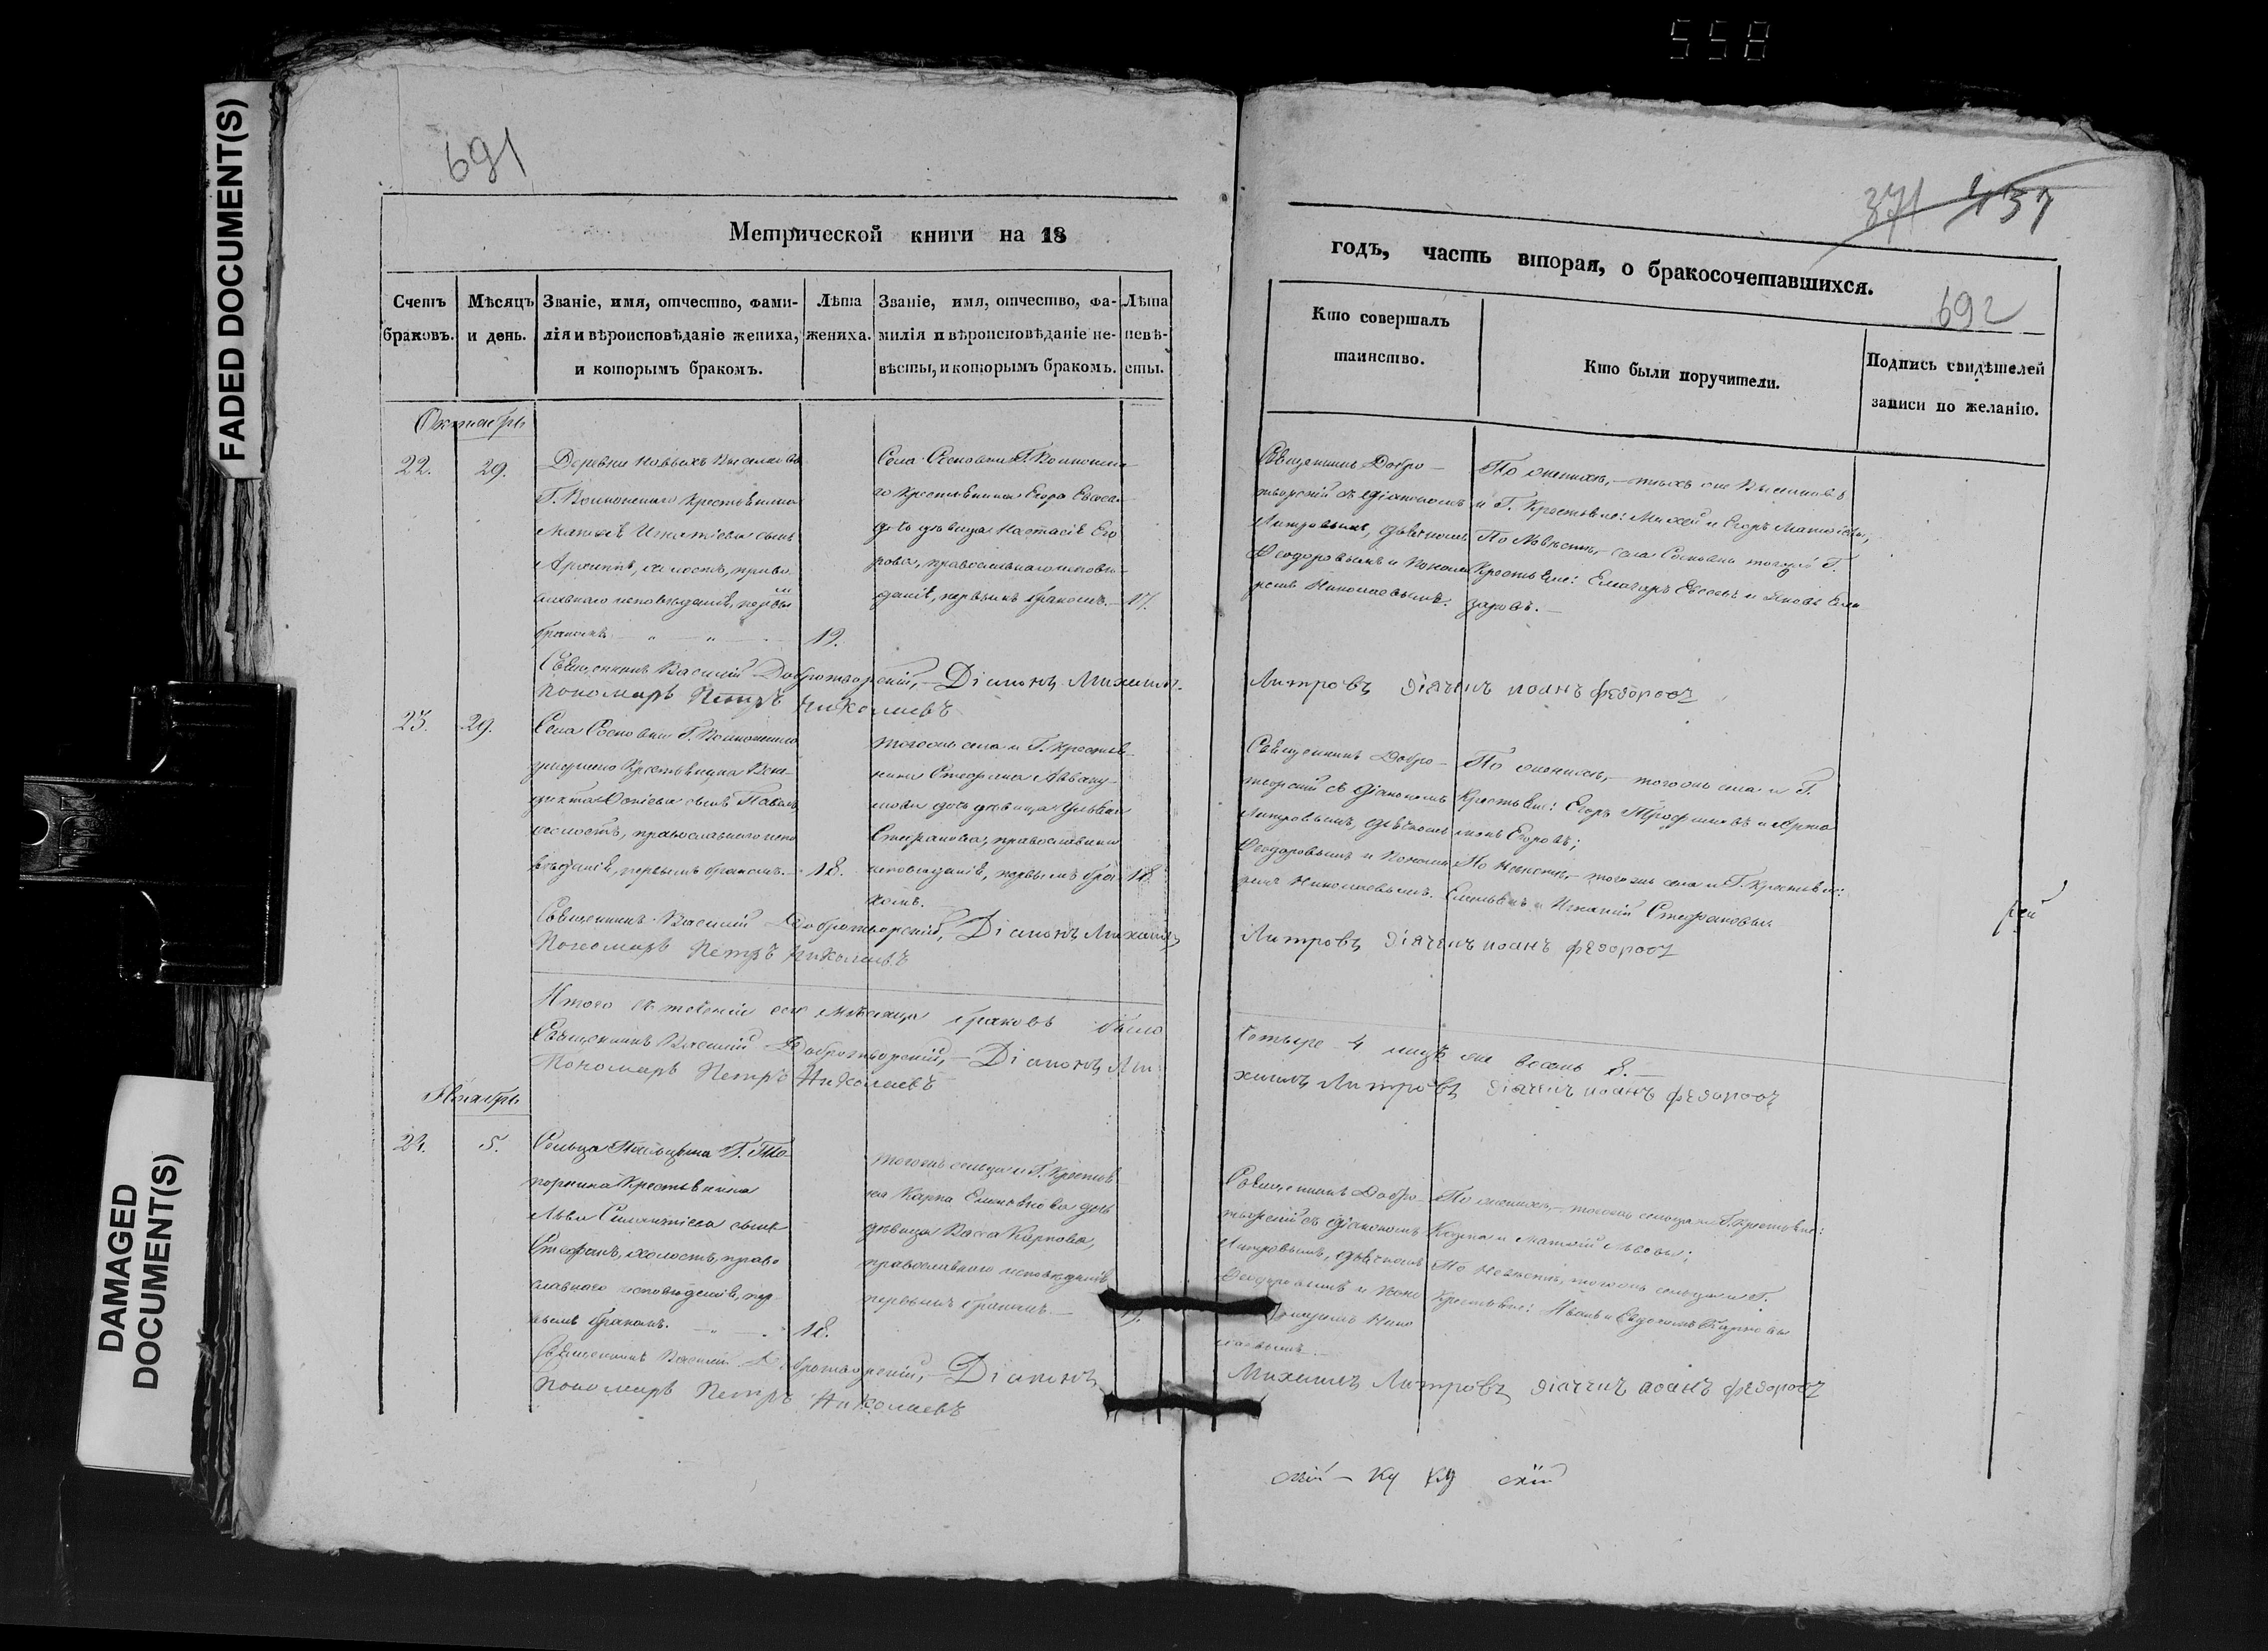 558
FADED DOCUMENT(S)
DAMAGED
DOCUMENT(S)
691
Метрической книги на 18
Счетъ браковъ.
Мѣсяцъ и день.
Званіе, имя, отчество, фами-
лія и вѣроисповѣданіе жениха,
и которымъ бракомъ.
Лѣта
жениха.
Званіе, имя, отчество, фа-
милія и вѣроисповѣданіе не-
вѣсты, и которымъ бракомъ.
Лѣта
невѣ-
сты.
Октябрь
22.
29.
Деревни Новыхъ Выселковъ
Г. Волконскаго Крестьянина
Матвѣя Игнатіева сынъ
Архиппъ, холостъ, право
славнаго исповѣданія, первы
бракомъ
19.
Села Сосновки Г. Волконска
го Крестьянина Егора Евсеева
дочь дѣвица Настасія Его
рова, православнаго исповѣ
данія, первымъ бракомъ.
17.
Священникъ Василій Добротворскій, Діаконъ Михаилъ
Пономарь Петръ Николаевъ
23.
29.
Села Сосновки Г. Волконскаго
Крестьянина
сынъ Павелъ,
холостъ, православнаго испо
вѣданія, первымъ бракомъ.
18.
тогожъ села и Г. крестья
нина Стефана
дочь дѣвица
Стефанова, православнаго
исповѣданія, первымъ бра
комъ.
18.
Священникъ Василій Добротворскій, Діаконъ Михаилъ
Пономарь Петръ Николаевъ
Итого въ теченіи сего мѣсяца браковъ было
Священникъ Василій Добротворскій, Діаконъ Ми
Пономарь Петръ Николаевъ
Ноябрь
24.
5.
Сельца
Крестьянина
Льва сынъ
Стефанъ, холостъ, право
славнаго исповѣданія, пер
вымъ бракомъ.
18.
тогожъ сельца и Г. Крестья
на Карпа дочь
дѣвица Васса Карпова,
православнаго исповѣданія
первымъ бракомъ.
Священникъ Василій Добротворскій, Діаконъ
Пономарь Петръ Николаевъ
371 437
годъ, часть вторая, о бракосочетавшихся.
692
Кто совершалъ
таинство.
Кто были поручители.
Подпись свидѣтелей
записи по желанію.
Священникъ Добро
творскій съ діакономъ
Дмитровымъ, дьячкомъ
Феодоровымъ и Понома
ремъ Николаевымъ.
По женихѣ, тѣхъ же Выселковъ
и Г. Крестьяне: Михей и Егоръ Матвѣевы,
По Невѣстѣ, села Сосновки тогожъ Г.
Крестьяне: Елизаръ Евсеевъ и Яковъ Ели
заровъ.
Дмитровъ діячекъ иоанъ федоровъ
Священникъ Добро
творскій съ діакономъ
Дмитровымъ, дьячкомъ
Феодоровымъ и Понома
ремъ Николаевымъ.
По женихѣ, тогожъ села и Г.
Крестьяне: Егоръ Трофимовъ и Арта
монъ Егоровъ;
По Невѣстѣ, тогожъ села и Г. крестьяне:
Емельянъ и Игнатій Стефановы
Дмитровъ діячекъ иоанъ федоровъ
четыре 4 лицъ же восемь 8.
хаилъ Дмитровъ діячекъ иоанъ федоровъ
Священникъ Добро
творскій съ діакономъ
Дмитровымъ, дьячкомъ
Феодоровымъ и Поно
маремъ Нико
лаевымъ.
По женихѣ, тогожъ сельца и Г. крестьяне:
Козма и Матвѣй Львовы;
По Невѣстѣ, тогожъ сельца и Г.
Крестьяне: Иванъ и Евдокимъ Карповы
Михаилъ Дмитровъ діячекъ иоанъ федоровъ